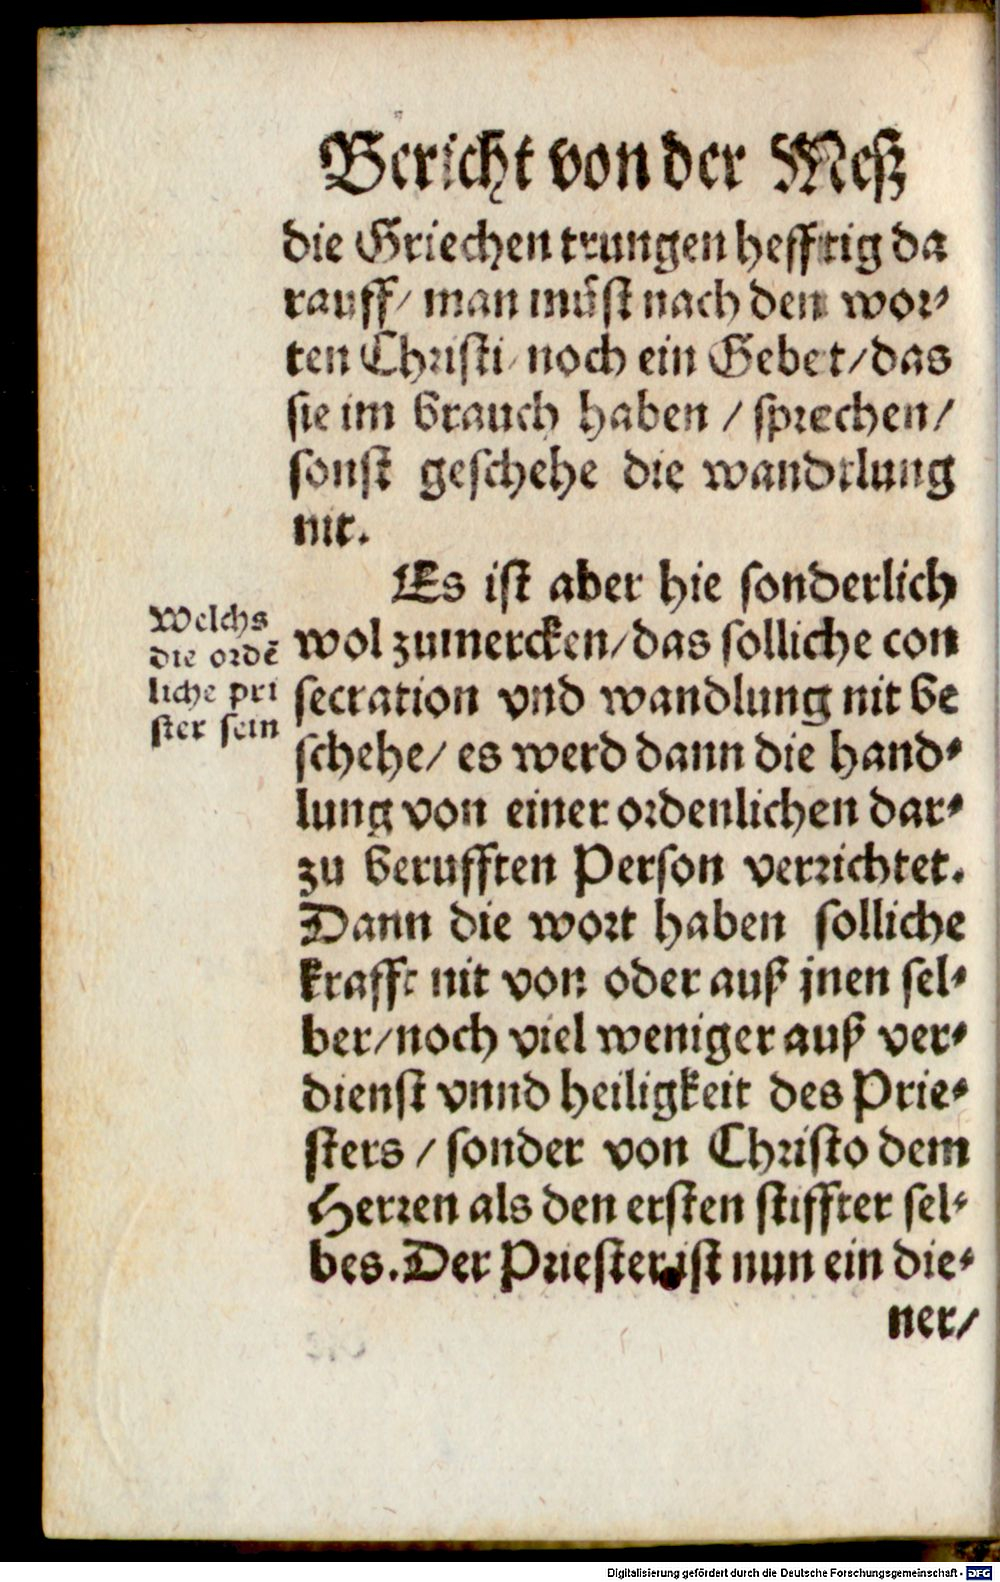 Bericht von der Meß
die Griechen trungen hefftig da
rauff/ man müst nach den wor-
ten Christi/ noch ein Gebet/das
sie im brauch haben / sprechen/
sonst geschehe die wandrlung
nit.
Es ist aber hie sonderlich
wol zumercken/das solliche con
secration vnd wandlung nit be
schehe/ es werd dann die hand-
lung von einer ordenlichen dar-
zu berufften Person verrichtet.
Dann die wort haben solliche
krafft nit von oder auß jnen sel-
ber/noch viel weniger auß ver-
dienst vnnd heiligkeit des Prie-
sters / sonder von Christo dem
Herren als den ersten stiffter sel-
bes. Der Priester ist nun ein die-
ner/
Welchs
die ordẽ
liche pri
ster sein
Digitalisierung gefördert durch die Deutsche Forschungsgemeinschaft - DFG